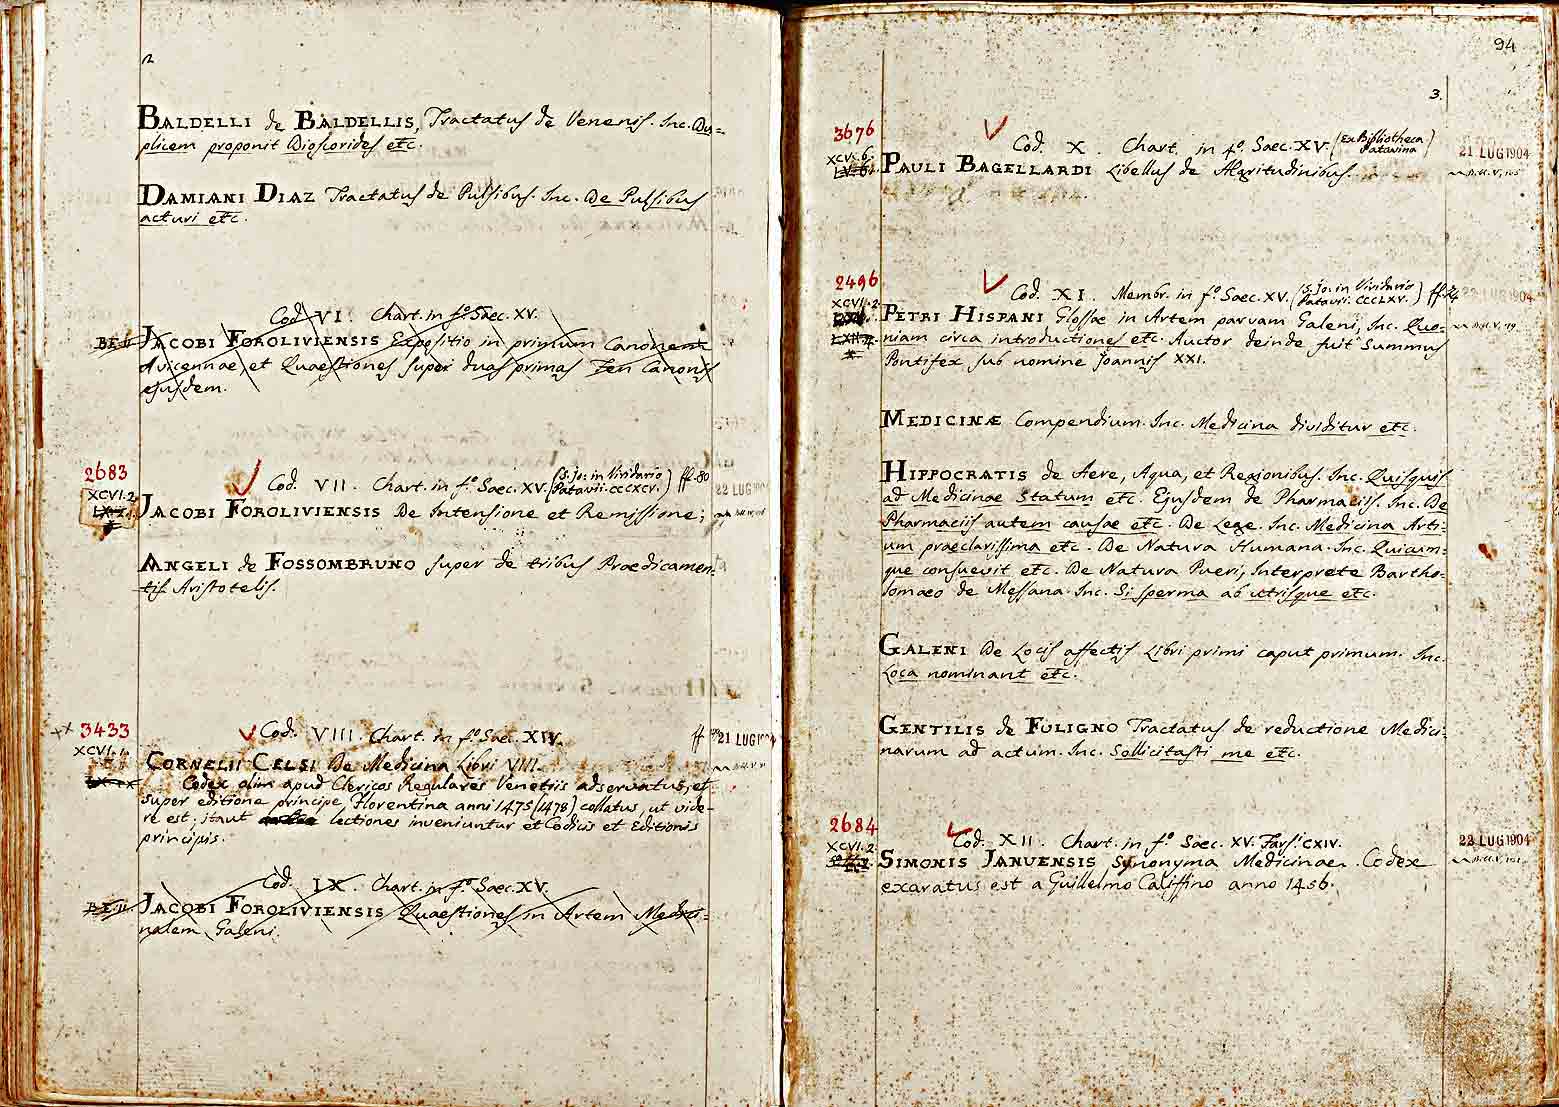 2
BALDELLI de BALDELLIS, Tractatus de Venenis. Inc. Du=
plicem proponit Dioscorides etc.
DAMIANI DIAZ Tractatus de Pulsibus. Inc. De Pulsibus
acturi etc.
Cod. VI. Chart. in fo. Saec. XV.
JACOBI FOROLIVIENSIS Expositio in primum Canonem
Avicennae, et Quaestiones super duas primas Fen Canonis
ejusdem.
2683
XCVI. 2.
Cod. VII. Chart. in fo. Saec. XV. (S. Jo: in Viridario
Patavii. CCCXCV.) ff. 80
22 LUG 1904
JACOBI FOROLIVIENSIS De Intensione et Remissione;
ANGELI de FOSSOMBRUNO super de tribus Praedicamen:
tis Aristotelis.
3433
XCVI. 1.
Cod. VIII. Chart. in fo. Saec. XIV.
ff
21 LUG 1904
CORNELII CELSI De Medicina Libri VIII.
Codex olim apud Clericos Regulares Venetiis adservatus, et
super editione principe Florentina anni 1475 (1478) collatus, ut vide-
re est; itaut lectiones inveniuntur et Codicis et Editionis
principis.
Cod. IX. Chart. in fo. Saec. XV.
JACOBI FOROLIVIENSIS Quaestiones in Artem Medici=
nalem Galeni.
94
3.
3676
XCVI. 6.
Cod. X. Chart. in 4o. Saec. XV. (Ex Bibliotheca
Patavina)
21 LUG 1904
PAULI BAGELLARDI Libellus de Aegritudinibus.
2496
XCVI. 2.
Cod. XI. Membr. in fo. Saec. XV. (S. Jo: in Viridario
Patavii. CCCLXV.) ff. 74
22 LUG 1904
PETRI HISPANI Glossae in Artem parvam Galeni, Inc. Quo=
niam circa introductiones etc. Auctor deinde fuit Summus
Pontifex sub nomine Joannis XXI.
MEDICINÆ Compendium. Inc. Medicina dividitur etc.
HIPPOCRATIS de Aere, Aqua, et Regionibus. Inc. Quisquis
ad Medicinae Statum etc. Ejusdem de Pharmaciis. Inc. De
Pharmaciis autem causae etc. De Lege. Inc. Medicina Arti:
um praeclarissima etc. De Natura Humana. Inc. Quicum=
que consuevit etc. De Natura Pueri, Interprete Bartho=
lomaeo de Messana. Inc. Si sperma ab utrisque etc.
GALENI De Locis affectis Libri primi caput primum. Inc.
Loca nominant etc.
GENTILIS de FULIGNO Tractatus de reductione Medici:
narum ad actum. Inc. Sollicitasti me etc.
2684
XCVI. 2.
Cod. XII. Chart. in fo. Saec. XV. Fars. CXIV.
22 LUG 1904
SIMONIS JANUENSIS Synonyma Medicinae. Codex
exaratus est a Guillelmo Califfino anno 1456.